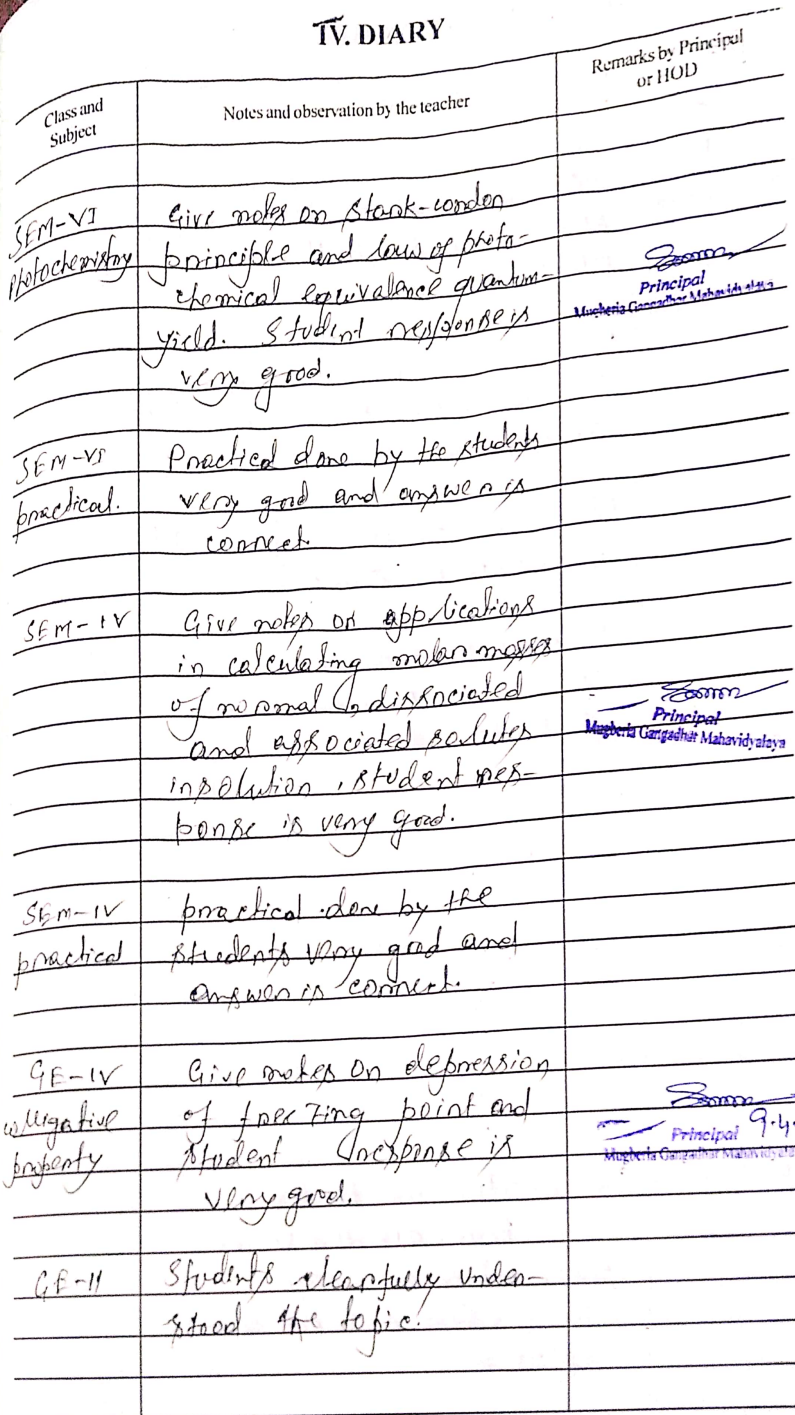 IV. DIARY
Class and
Subject
Notes and observation by the teacher
Remarks by Principal
or HOD
SEM-VI
Photochemistry
Give notes on Stark-condon
principle and law of photo-
chemical equivalence quantum-
yield. Student response is
very good.
Principal
Mugberia Gangadhar Mahavidyalaya
SEM-VI
practical.
Practical done by the students
very good and answer is
correct.
SEM-IV
Give notes on applications
in calculating molar masses
of normal, dissociated
and associated solutes
in solution, student res-
ponse is very good.
Principal
Mugberia Gangadhar Mahavidyalaya
SEM-IV
practical
practical done by the
students very good and
answer is correct.
GE-IV
colligative
property
Give notes on depression
of freezing point and
student response is
very good.
Principal 9.4.
Mugberia Gangadhar Mahavidyalaya
GE-II
Students clearfully under-
stood the topic.